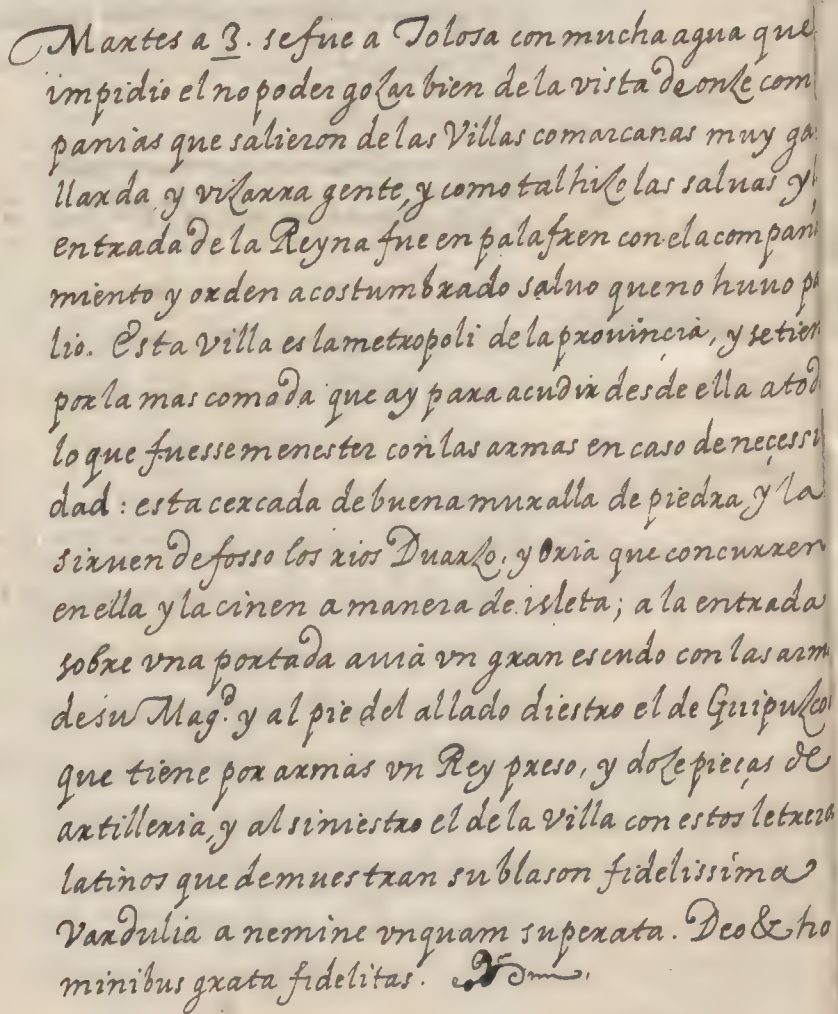 Martes a 3. se fue a Tolosa con mucha agua que
impidio el no poder gozar bien de la vista de onze com
panias que salieron de las Villas comarcanas muy ga
llarda, y vizarra gente, y como tal hizo las saluas y
entrada de la Reyna fue en palafren con el acompani
miento y orden acostumbrado saluo que no huuo pa
lio. Esta villa es la metropoli de la prouincia, y se tien
por la mas comoda que ay para acudir desde ella a tod
lo que fuesse menester con las armas en caso de neçessi
dad: esta cercada de buena muralla de piedra, y la
siruen de fosso los rios Duarzo, y Oria que concurren
en ella y la cinen a manera de isleta; a la entrada
sobre vna portada auia vn gran escudo con las arm
de su Mag.d y al pie del al lado diestro el de Guipuzco
que tiene por armas vn Rey preso, y doze pieças de
artilleria, y al siniestro el de la villa con estos letrero
latinos que demuestran su blason fidelissima
Vardulia a nemine vnquam superata. Deo & ho
minibus grata fidelitas.